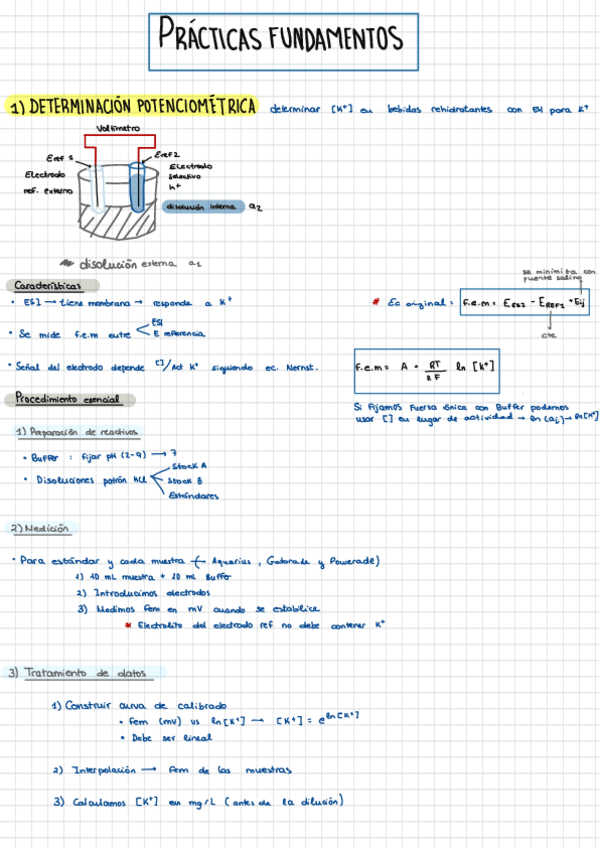 PRÁCTICAS FUNDAMENTOS
1) DETERMINACIÓN POTENCIOMÉTRICA determinar [K+] en bebidas rehidratantes con ESI para K+
Voltímetro
Eref 1
Eref 2
Electrodo
ref. externo
Electrodo
selectivo
K+
disolución interna a2
disolución externa a1
Características
• ESI → tiene membrana → responde a K+
• Se mide f.e.m entre
ESI
E referencia
• Señal del electrodo depende []/Act K+ siguiendo ec. Nernst.
se minimiza con
puente salino
* Ec original: f.e.m = EESI - EREF2 + Eij
cte
f.e.m = A + RT/zF ln [K+]
Si fijamos fuerza iónica con Buffer podemos
usar [] en lugar de actividad → ln(ai) → ln[K+]
Procedimiento esencial
1) Preparación de reactivos
• Buffer : fijar pH (2-9) → 7
• Disoluciones patrón KCl
Stock A
Stock B
Estándares
2) Medición
• Para estándar y cada muestra (Aquarius, Gatorade y Powerade)
1) 10 mL muestra + 10 mL Buffer
2) Introducimos electrodos
3) Medimos fem en mV cuando se estabilice
* Electrolito del electrodo ref no debe contener K+
3) Tratamiento de datos
1) Construir curva de calibrado
• Fem (mV) vs ln[K+] → [K+] = e^ln[K+]
• Debe ser lineal
2) Interpolación → fem de las muestras
3) Calculamos [K+] en mg/L (antes de la dilución)